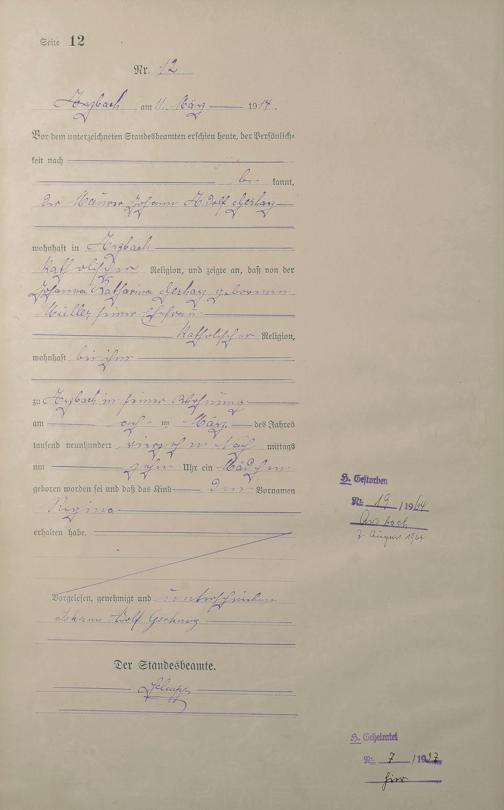 Seite 12
Nr. 12
Arzbach am 11. März 1914.
Vor dem unterzeichneten Standesbeamten erschien heute, der Persönlich-
keit nach
be- kannt,
der Maurer Johann Adolf Gerharz
wohnhaft in Arzbach
katholischer Religion, und zeigte an, daß von der
Johanna Katharina Gerharz geborenen
Müller seiner Ehefrau
katholischer Religion,
wohnhaft bei ihm
zu Arzbach in seiner Wohnung
am März des Jahres
tausend neunhundert vierzehn Nach mittags
um Uhr ein Mädchen
geboren worden sei und daß das Kind den Vornamen
Regina
erhalten habe.
Vorgelesen, genehmigt und unterschrieben
Johann Adolf Gerharz
Der Standesbeamte.
H. Gestorben
Nr. 19 /1964
Arzbach
3. August 1964
H. Geheiratet
Nr. 7 /1937
hier